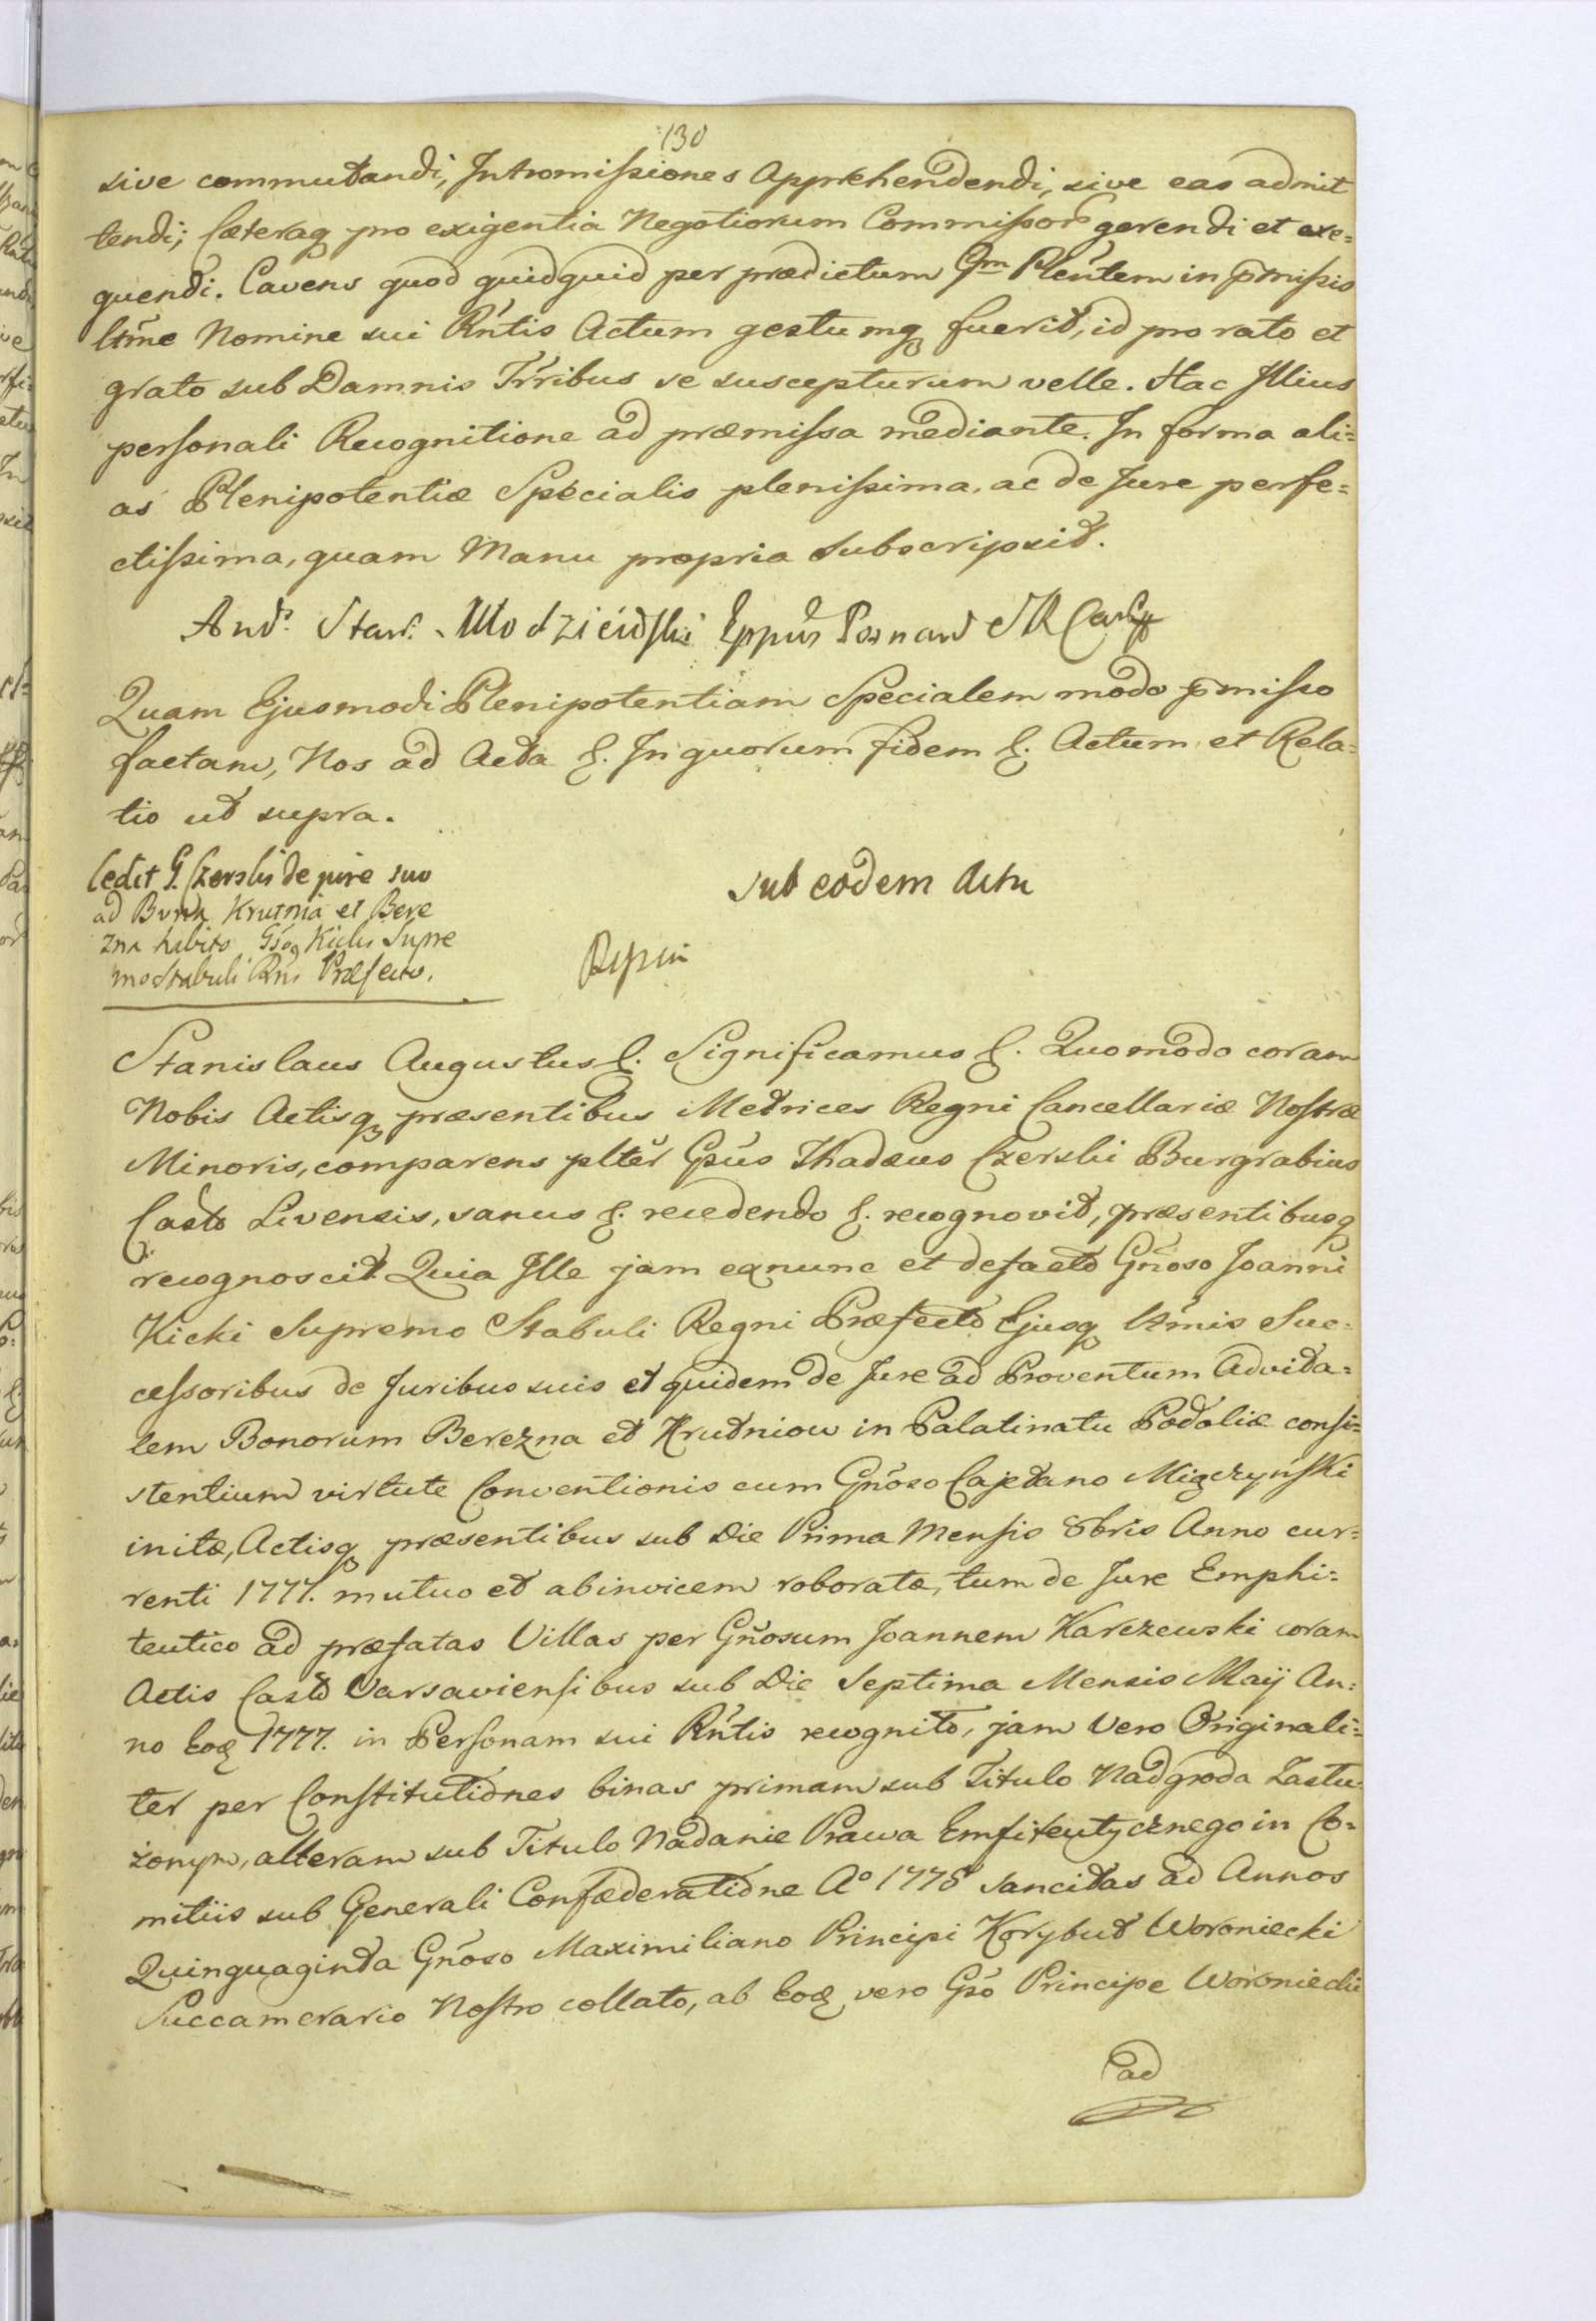 130
sive commutandi, Intromissiones Apprehendendi, sive eas admit
tendi; Cæteraq pro exigentia Negotiorum Commissor gerendi et exe=
quendi. Cavens quod quidquid per prædictum Gm Plentem in pmissis
ltme Nomine sui Rntis Actum gestumq fuerit, id pro rato et
grato sub Damnis Trribus se suscepturum velle. Hac Illius
personali Recognitione ad præmissa mediante. In forma ali=
as Plenipotentiæ Specialis plenissima, ac de Jure perfe=
ctissima, quam Manu propria subscripsit.
And. Stan. Młodzieiowski Eppus Posnan
Quam Ejusmodi Plenipotentiam Specialem modo pmisso
factam, Nos ad Acta &. In quorum fidem &. Actum et Rela=
tio ut supra.
Cedit G. Czerski de jure suo
ad Bona Krutnia et Bere
zna habito Gsoq Kicki Supre
mo Stabuli Rni Præfecto.
Sub eodem Actu
Stanislaus Augustus &. Significamus &. Quomodo coram
Nobis Actisq præsentibus Metrices Regni Cancellariæ Nostræ
Minoris, comparens plter Gsus Thadæus Czerski Burgrabius
Castr Livensis, sanus &. recedendo &. recognovit, præsentibusq
recognoscit. Quia Ille jam exnunc et defacto Gnoso Joanni
Kicki Supremo Stabuli Regni Præfecto Ejusq ltmis Suc=
cessoribus de Juribus suis et quidem de Jure ad Proventum Advita=
lem Bonorum Berezna et Krutniow in Palatinatu Podoliæ consi=
stentium virtute Conventionis cum Gnoso Cajetano Miączyński
initæ, Actisq præsentibus sub Die Prima Mensis 8bris Anno cur=
renti 1777. mutuo et abinvicem roboratæ, tum de Jure Emphi=
teutico ad præfatas Villas per Gnosum Joannem Karczewski coram
Actis Castr Varsaviensibus sub Die Septima Mensis Maij An=
no Eoq 1777. in Personam sui Rntis recognito, jam Vero Originali=
ter per Constitutiones binas primam sub Titulo Nadgroda Zastu
żonym, alteram sub Titulo Nadanie Prawa Emfiteutycznego in Co=
mitiis sub Generali Confæderatione Ao 1775 sancitas ad Annos
Quinquaginta Gnoso Maximiliano Principi Korybut Woroniecki
Succamerario Nostro collato, ab Eoq vero Gso Principe Woroniecki
ad